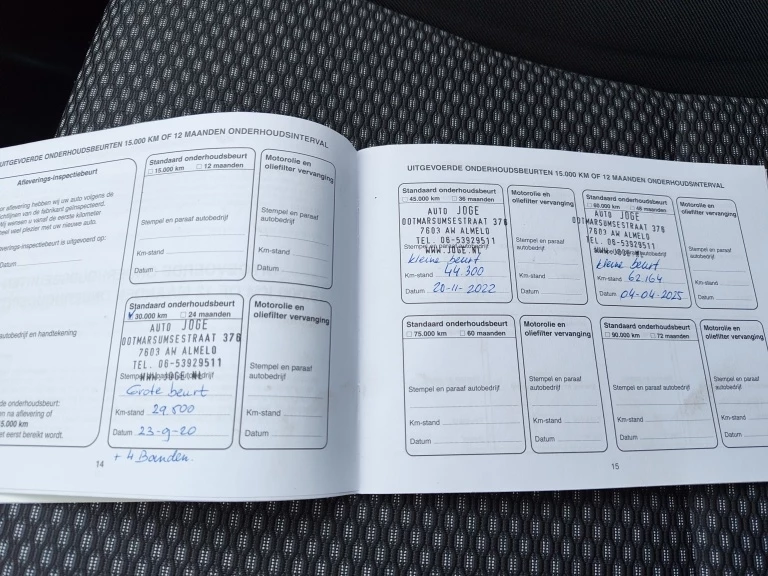 UITGEVOERDE ONDERHOUDSBEURTEN 15.000 KM OF 12 MAANDEN ONDERHOUDSINTERVAL
Afleverings-inspectiebeurt
aflevering hebben wij uw auto volgens de
van de fabrikant geïnspecteerd.
wensen u vanaf de eerste kilometer
veel plezier met uw nieuwe auto.
is uitgevoerd op:
Datum
autobedrijf en handtekening
onderhoudsbeurt:
na aflevering of
5.000 km
eerst bereikt wordt.
Standaard onderhoudsbeurt
□ 15.000 km □ 12 maanden
Stempel en paraaf autobedrijf
Km-stand
Datum
Motorolie en
oliefilter vervanging
Stempel en paraaf
autobedrijf
Km-stand
Datum
Standaard onderhoudsbeurt
☑ 30.000 km □ 24 maanden
AUTO JOGE
OOTMARSUMSESTRAAT 376
7603 AW ALMELO
TEL. 06-53929511
WWW.JOGE.NL
Grote beurt
Km-stand 29.500
Datum 23-9-20
+ 4 Banden.
Motorolie en
oliefilter vervanging
Stempel en paraaf
autobedrijf
Km-stand
Datum
14
UITGEVOERDE ONDERHOUDSBEURTEN 15.000 KM OF 12 MAANDEN ONDERHOUDSINTERVAL
Standaard onderhoudsbeurt
□ 45.000 km □ 36 maanden
AUTO JOGE
OOTMARSUMSESTRAAT 376
7603 AW ALMELO
TEL. 06-53929511
Stempel en paraaf autobedrijf
WWW.JOGE.NL
kleine beurt
Km-stand 44.300
Datum 20-11-2022
Motorolie en
oliefilter vervanging
Stempel en paraaf
autobedrijf
Km-stand
Datum
Standaard onderhoudsbeurt
□ 60.000 km □ 48 maanden
AUTO JOGE
OOTMARSUMSESTRAAT 376
7603 AW ALMELO
TEL. 06-53929511
WWW.JOGE.NL
kleine beurt
Km-stand 62.164
Datum 04-04-2025
Motorolie en
oliefilter vervanging
Stempel en paraaf
autobedrijf
Km-stand
Datum
Standaard onderhoudsbeurt
□ 75.000 km □ 60 maanden
Stempel en paraaf autobedrijf
Km-stand
Datum
Motorolie en
oliefilter vervanging
Stempel en paraaf
autobedrijf
Km-stand
Datum
Standaard onderhoudsbeurt
□ 90.000 km □ 72 maanden
Stempel en paraaf autobedrijf
Km-stand
Datum
Motorolie en
oliefilter vervanging
Stempel en paraaf
autobedrijf
Km-stand
Datum
15